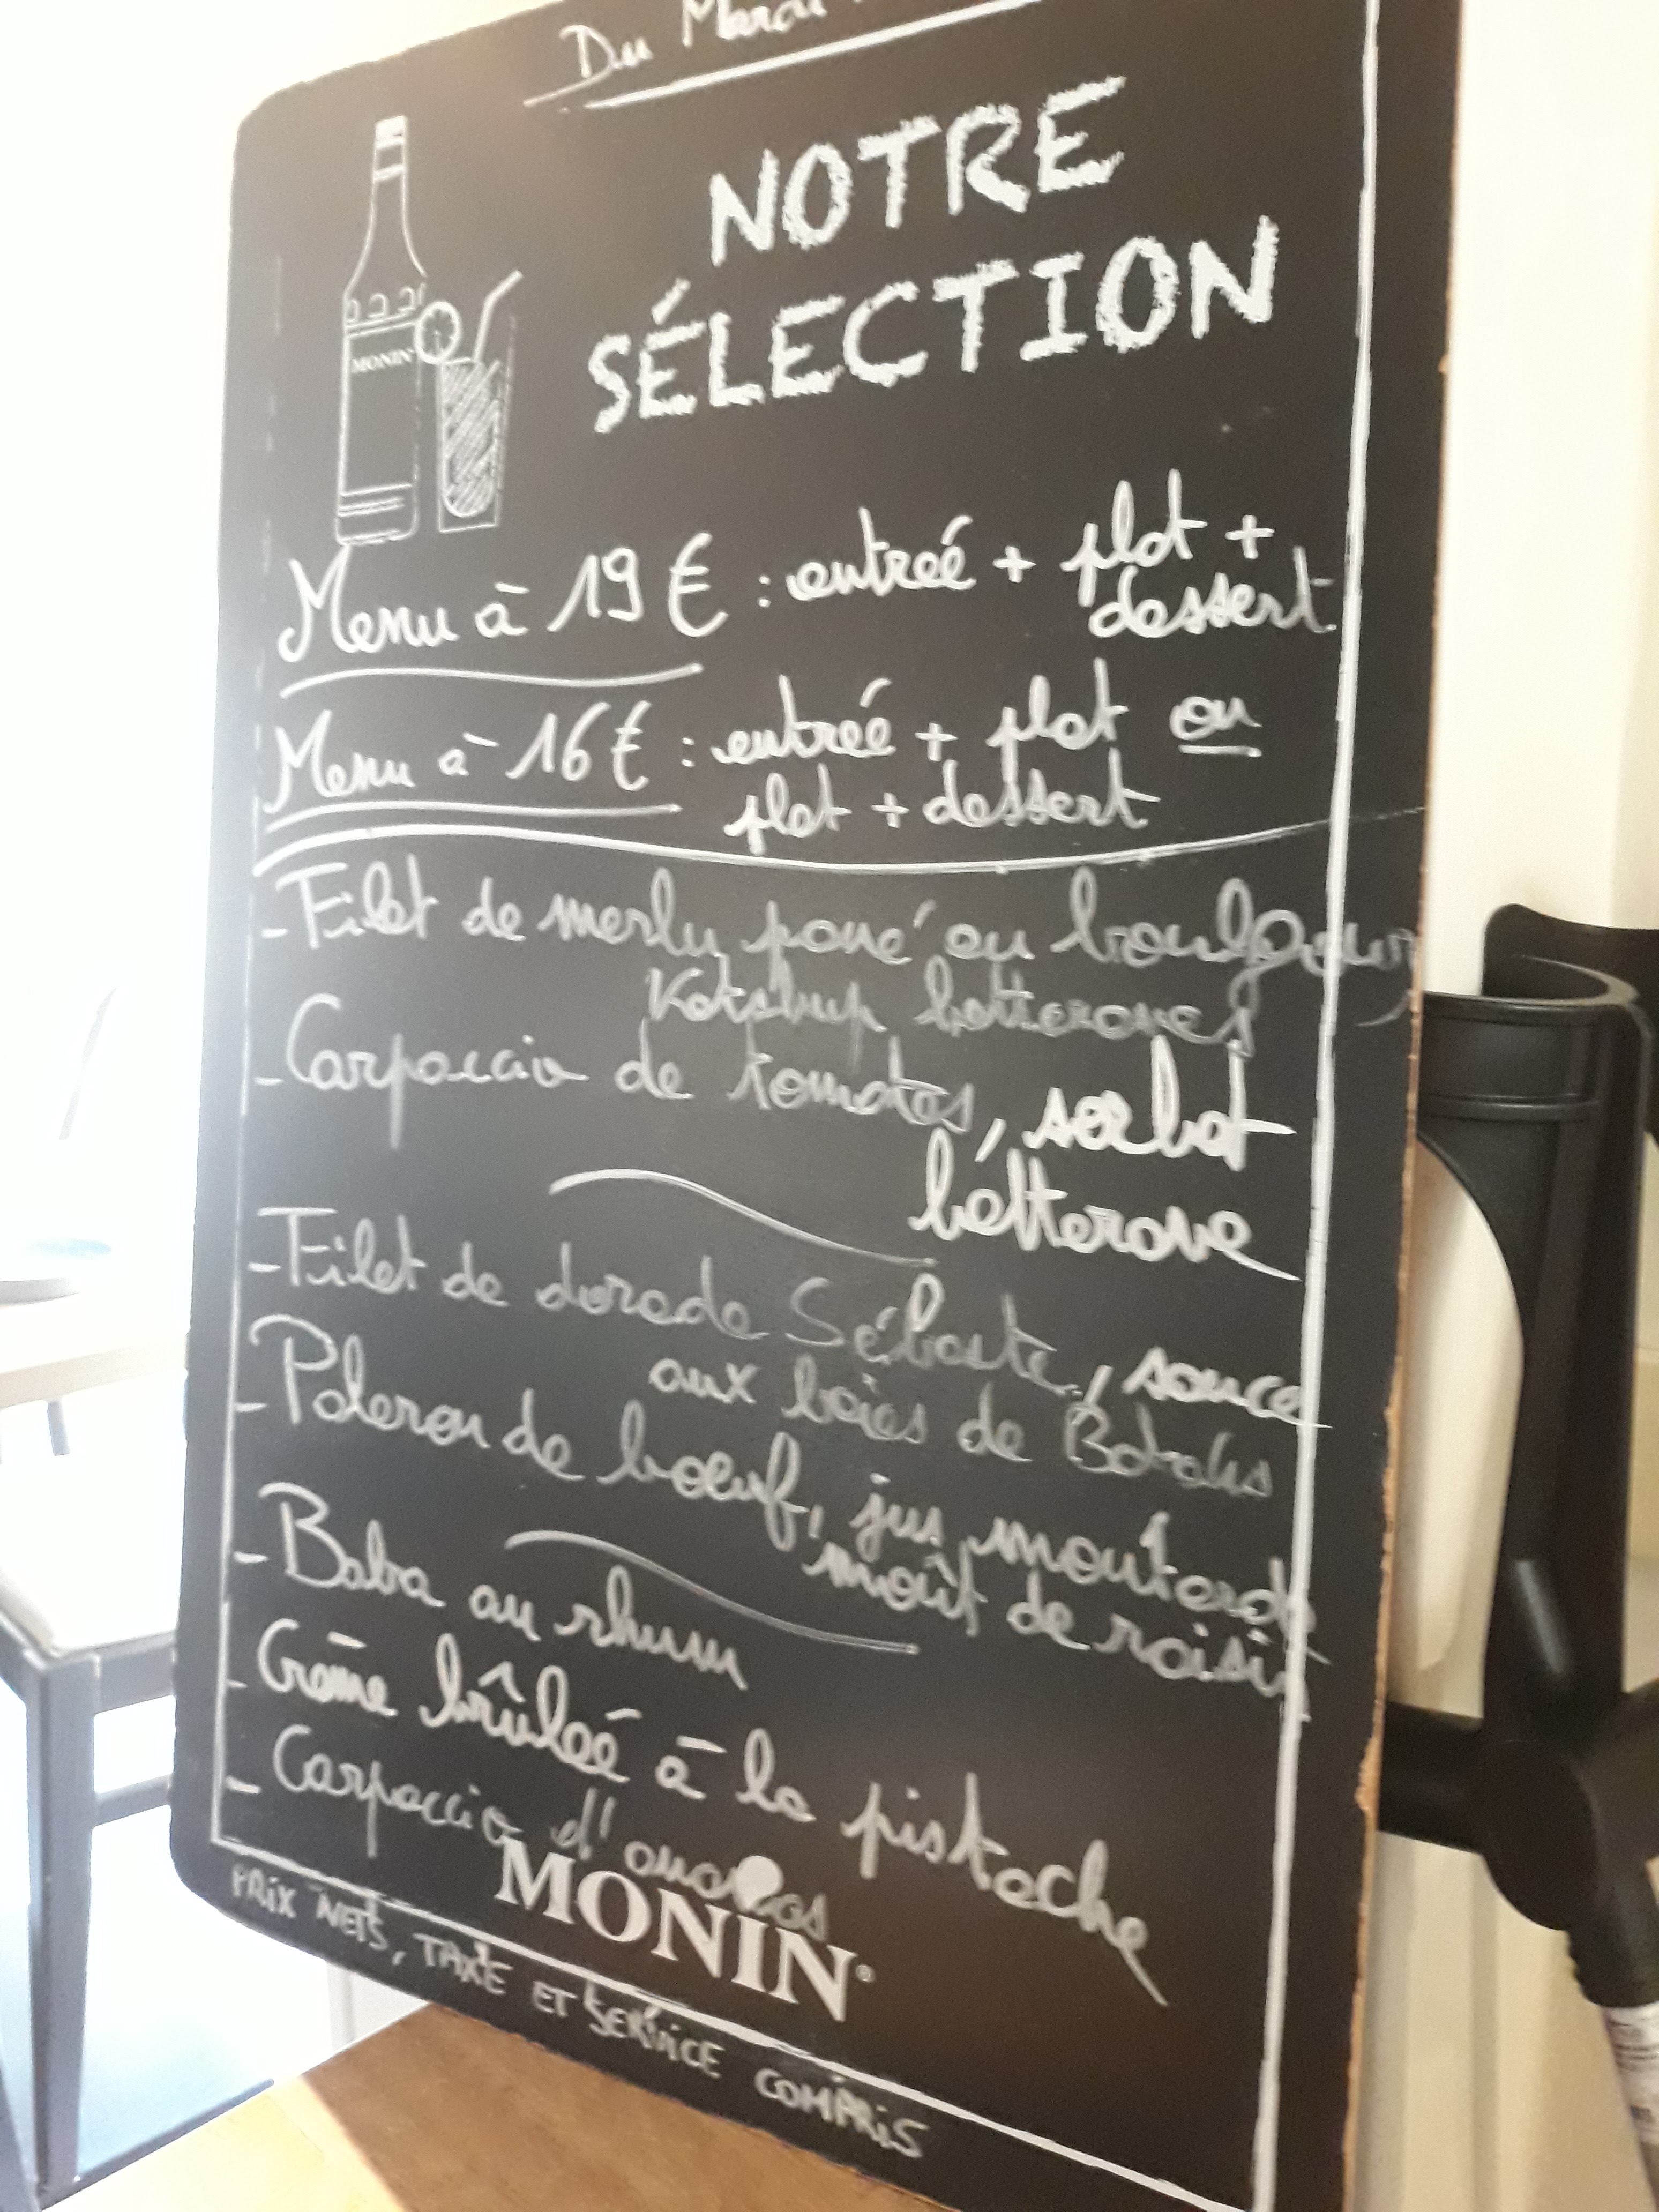 Du Mardi
NOTRE
SÉLECTION
MONIN
Menu à 19 € : entreé + plat +
dessert
Menu à 16 € : entreé + plat ou
plat + dessert
- Filet de merlu pané au boulgour,
Ketchup betteraves
- Carpaccio de tomates, sorbet
bétterave
- Filet de dorade Sébaste, sauce
aux baies de
- Paleron de boeuf, jus moutarde
moût de raisin
- Baba au rhum
- Crème brûleé à la pistache
- Carpaccio d'ananas
MONIN
PRIX NETS, TAXE ET SERVICE COMPRIS